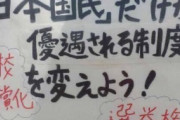 日本国民」だけが
優遇される制度
を変えよう!
校
償化
選挙権